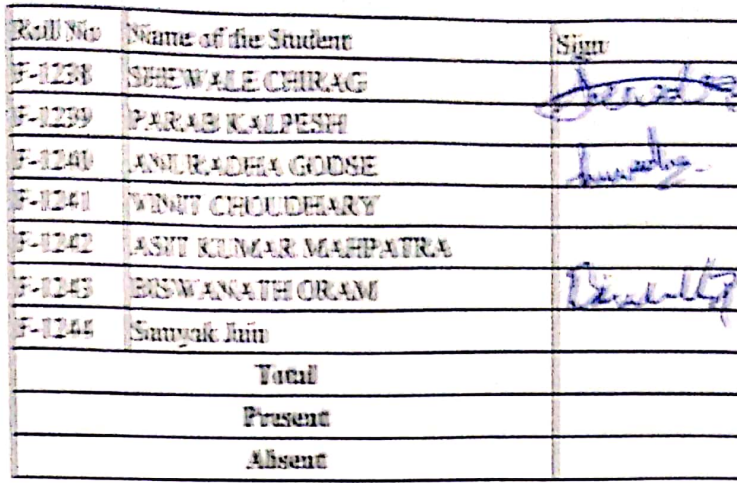 Roll No Name of the Student Sign
F-1238 SHEWALE CHIRAG
F-1239 PARAB KALPESH
F-1240 ANURADHA GODSE
F-1241 VINIT CHOUDHARY
F-1242 ASIT KUMAR MAHPATRA
F-1243 BISWANATH ORAM
F-1244 Samyak Jain
Total
Present
Absent